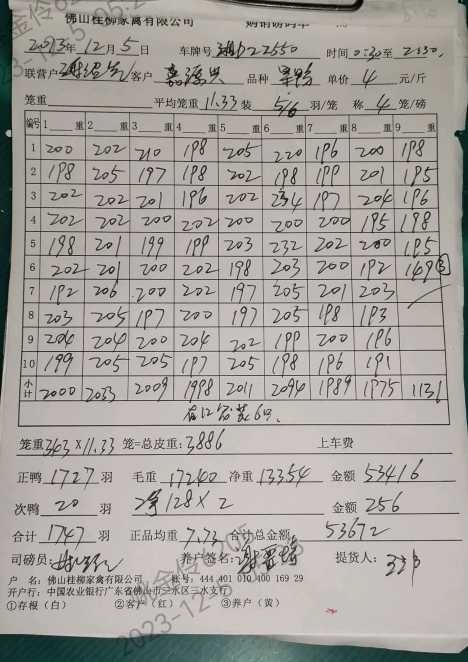 佛山桂柳家禽有限公司 购销磅码单
2023年12月5日 车牌号 D22550 时间0:30至2:30
联营户 客户 品种 单价 4 元/斤
笼重 平均笼重11.33装 5/6 羽/笼 称 4 笼/磅
编号 1 重 2 重 3 重 4 重 5 重 6 重 7 重 8 重 9 重
1 200 202 210 198 205 220 196 200 198
2 198 205 197 198 202 198 199 201 195
3 202 202 201 196 202 234 197 204 196
4 202 202 200 202 200 200 200 195 198
5 198 201 199 199 203 232 202 200 195
6 202 201 200 202 198 203 200 192 149 ③
7 192 206 200 202 197 205 201 203
8 203 205 197 200 197 205 198 193
9 204 204 200 204 202 199 200 196
10 199 205 205 197 205 198 196 191
小计 2000 2033 2009 1998 2011 2094 1989 1975 1131
有12笼装6只
笼重343×11.33 笼=总皮重:3886 上车费
正鸭 1727 羽 毛重 17240 净重 13354 金额 53416
次鸭 20 羽 净128×2 金额 256
合计 1747 羽 正品均重 7.73 合计总金额 53672
司磅员: 养户签名: 提货人:
户 名:佛山桂柳家禽有限公司 帐号:444 401 010 400 169 29
开户行:中国农业银行广东省佛山市三水区三水支行
①存根(白) ②客户(红) ③养户(黄)